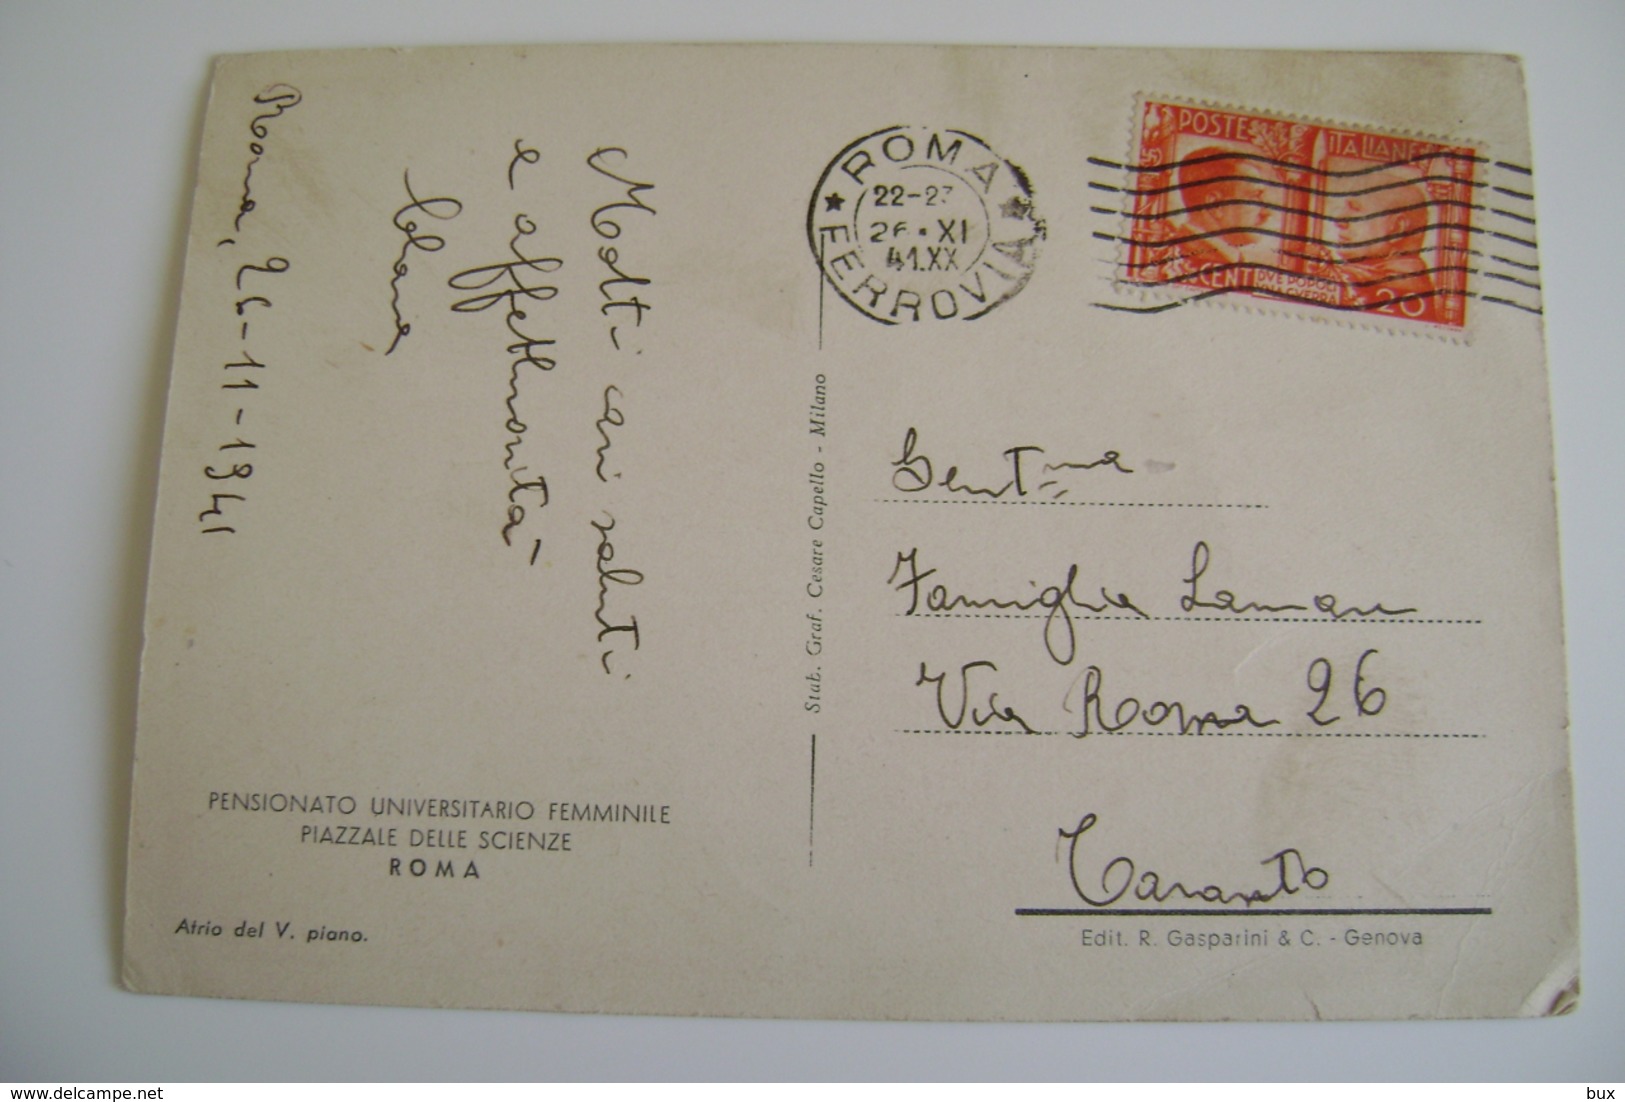 Roma, 26-11-1941
Molti cari saluti
e affettuosità
PENSIONATO UNIVERSITARIO FEMMINILE
PIAZZALE DELLE SCIENZE
ROMA
Atrio del V. piano.
Stab. Graf. Cesare Capello - Milano
ROMA
FERROVIA
22-23
26·XI
41.XX
POSTE ITALIANE
CENT 20
DVE POPOLI
VNA GVERRA
Gent.ma
Famiglia
Via Roma 26
Taranto
Edit. R. Gasparini & C. - Genova
bux